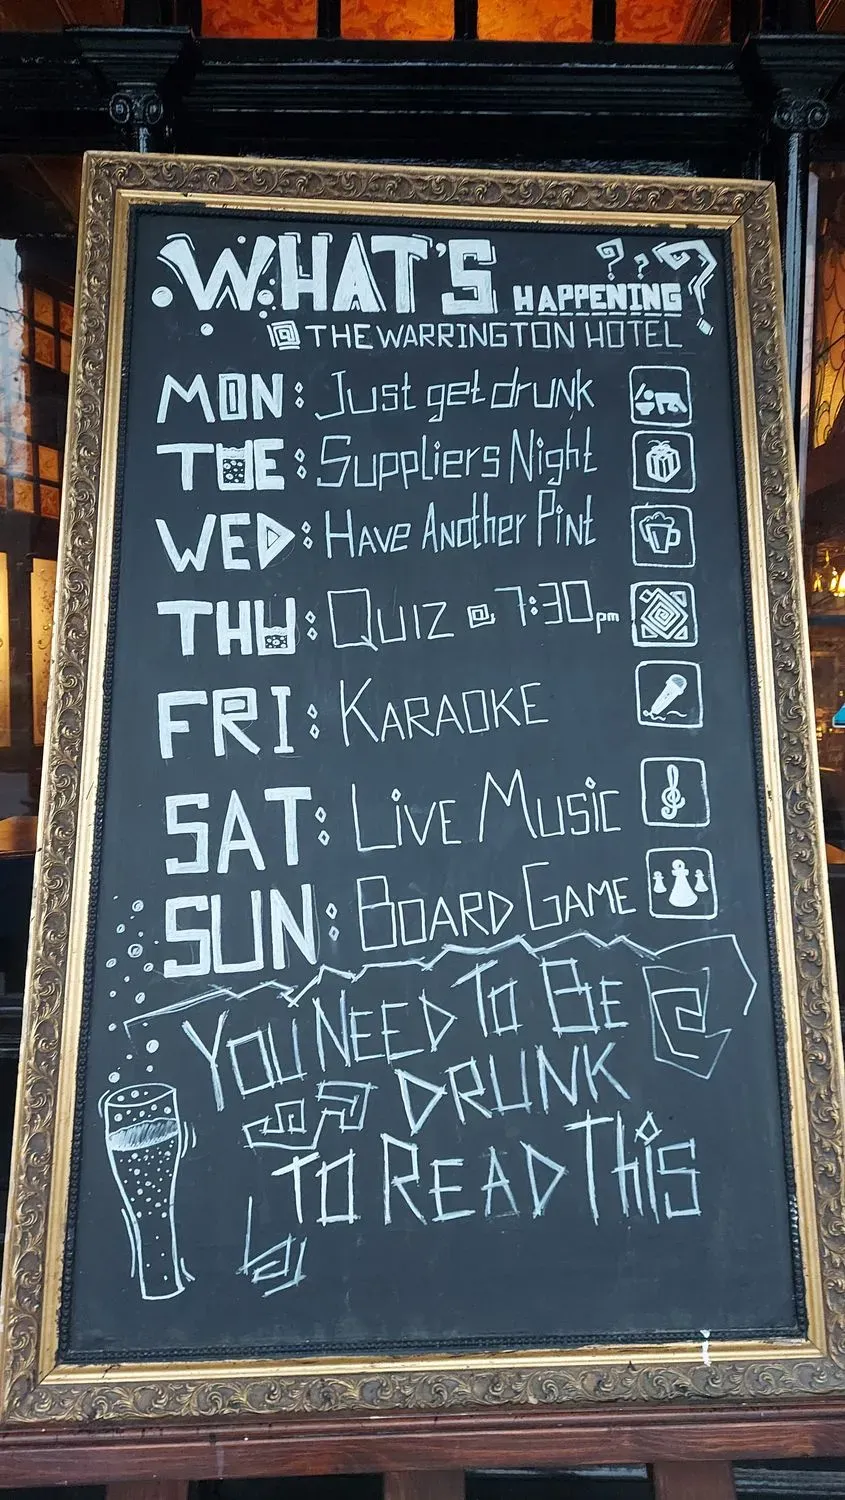 WHAT'S HAPPENING ???
@ THE WARRINGTON HOTEL
MON: Just get drunk
TUE: Suppliers Night
WED: Have Another Pint
THU: Quiz @ 7:30pm
FRI: KARAOKE
SAT: Live Music
SUN: Board Game
You Need To Be
DRUNK
To Read This